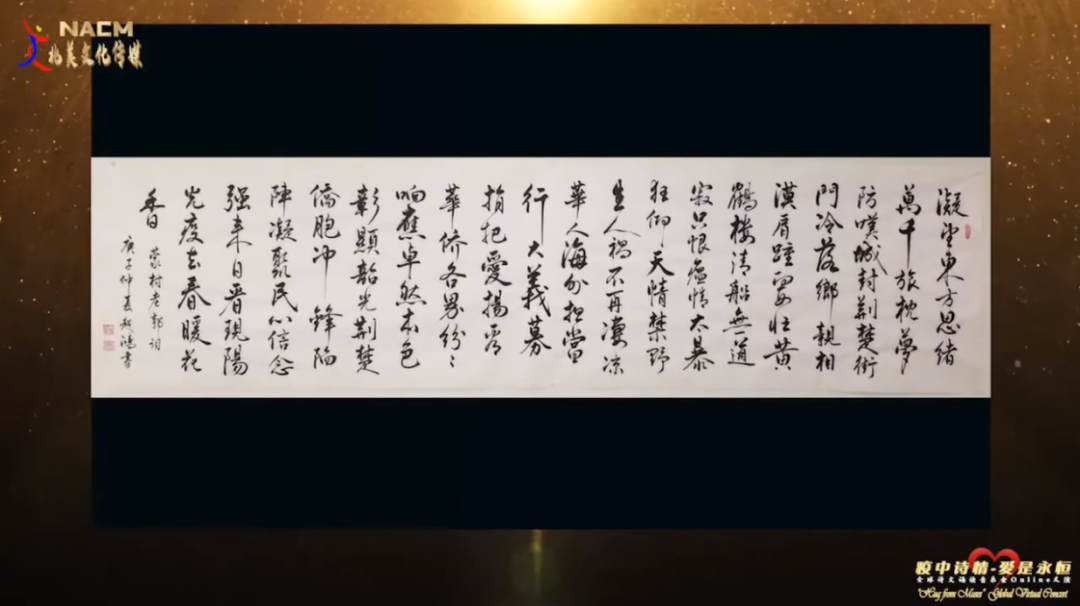 NACM
北美文化传媒
凝望東方思緒
萬千旅枕夢
防嘆城封荊楚街
門冷落鄉親相
漠肩踵壯黃
鶴樓清船無道
寂只恨瘟情太暴
狂仰天情禁野
生人禍不再淒凉
華人海外担當
行大義募
捐把愛揚
華僑各界紛〻
响應卓然本色
彰顯韶光荊楚
僑胞冲鋒陷
陣凝聚民心信念
强来日晋現陽
光疫去春暖花
香
蒙村老郭词
庚子仲夏書
疫中诗情-爱是永恒
全球诗文诵读音乐会Online云演
"Hug from Muses" Global Virtual Concert